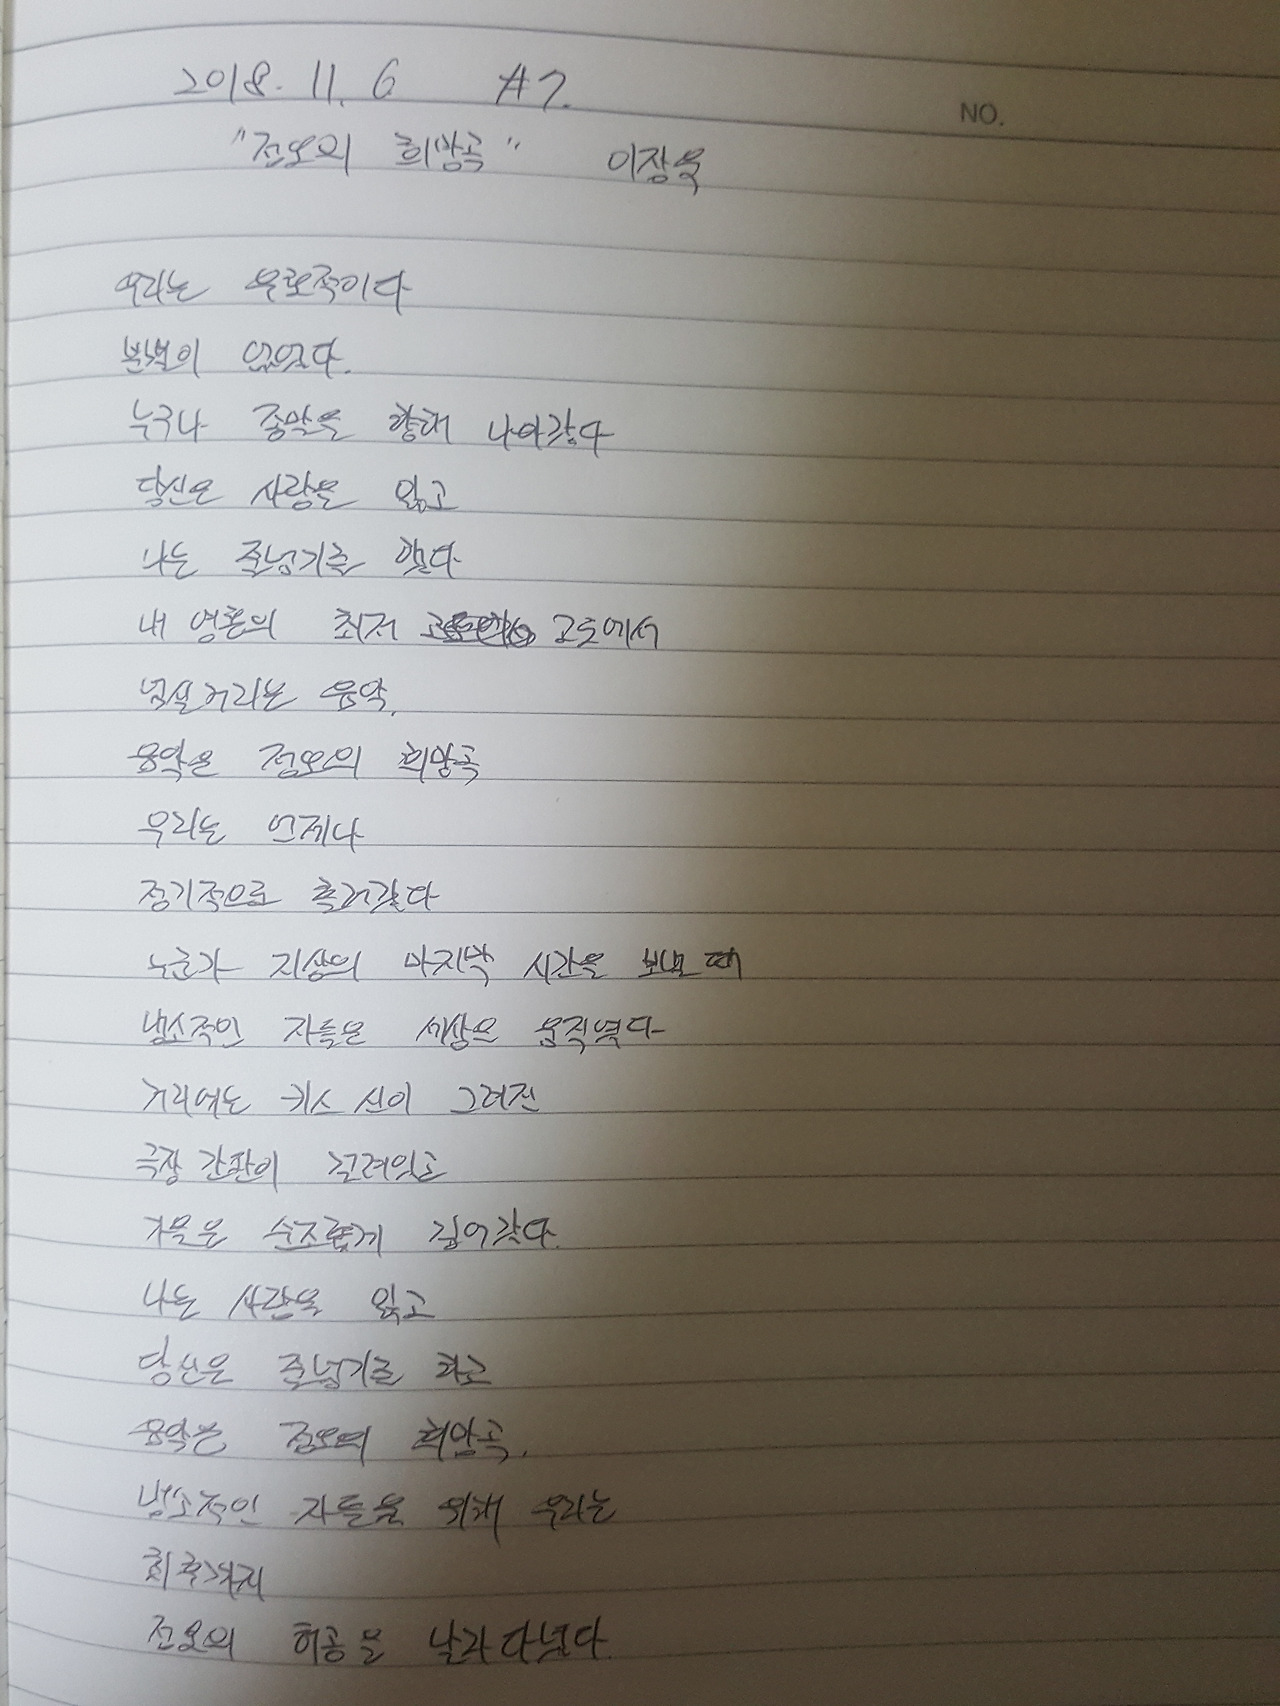 2018. 11. 6 #7.
NO.
"정오의 희망곡" 이장욱
우리는 우호적이다
분별이 없었다.
누구나 종말을 향해 나아갔다
당신은 사랑을 잃고
나는 줄넘기를 했다
내 영혼의 최저 고도에서
넘실거리는 음악,
음악은 정오의 희망곡
우리는 언제나
정기적으로 흘러갔다
누군가 지상의 마지막 시간을 보낼 때
냉소적인 자들은 세상을 움직였다
거리에는 키스 신이 그려진
극장 간판이 걸려있고
가을은 순조롭게 깊어갔다.
나는 사랑을 잃고
당신은 줄넘기를 하고
음악은 정오의 희망곡,
냉소적인 자들을 위해 우리는
최후까지
정오의 허공을 날아다녔다.